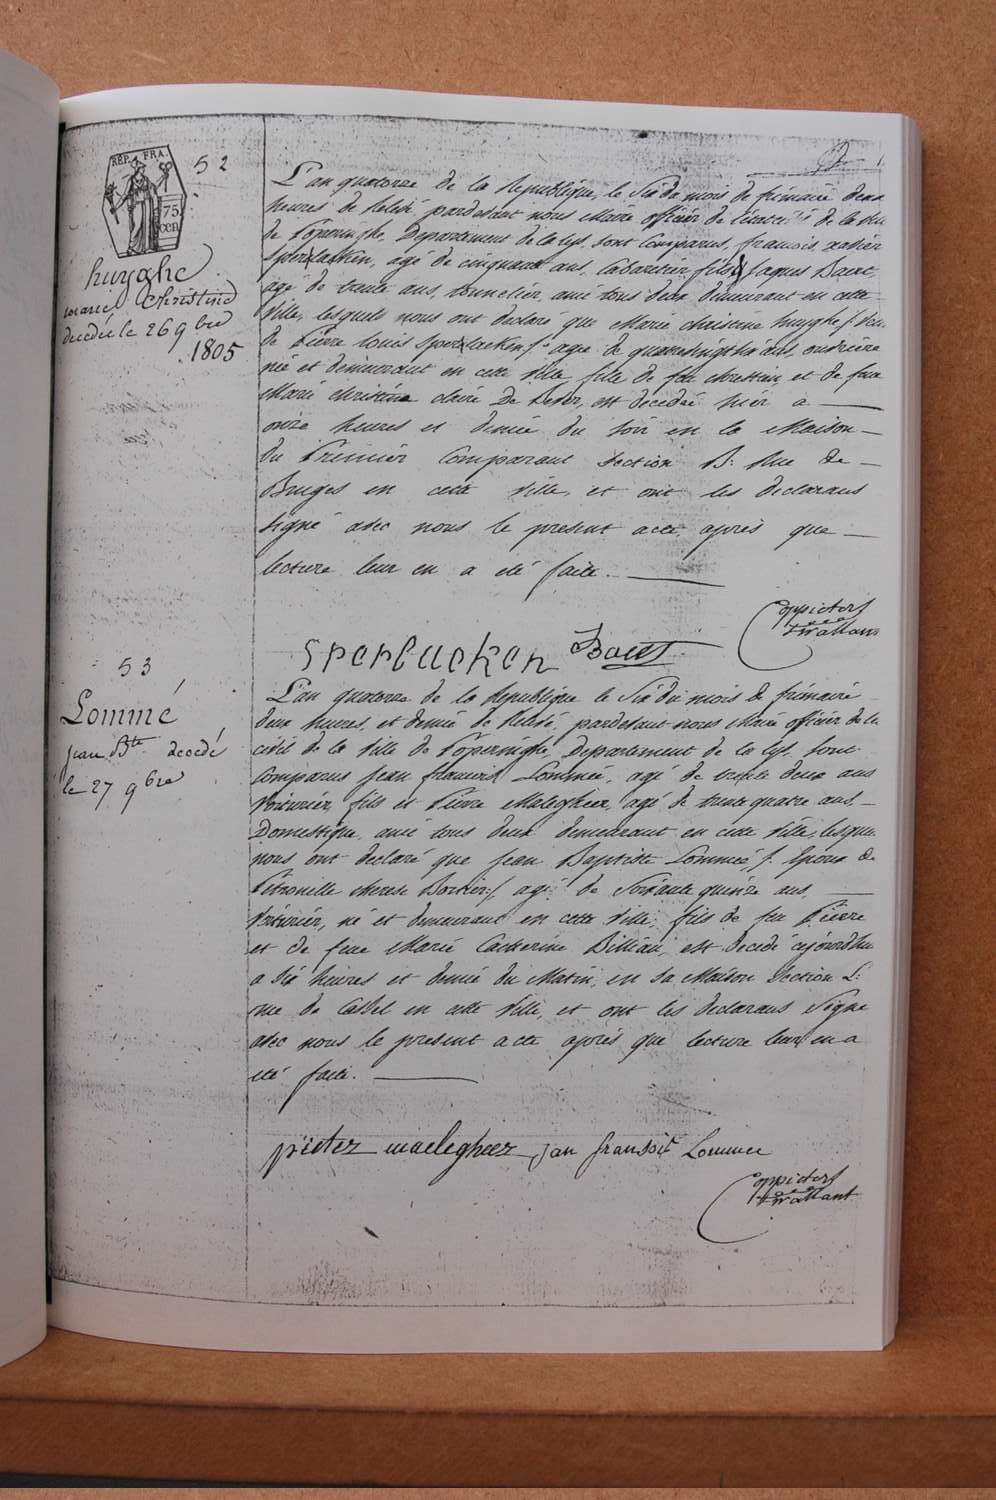 REP. FRA.
75
cen
52
huyghe
marie Christine
decedée le 26 9bre
1805
L'an quatorze de la Republique, le Six du mois de frimaire deux
heures de relevé pardevant nous Maire officier de de la ville
de Poperinghe, Departement de la Lys, sont Comparus, francois xavier
Sperlaeken, agé de cinquante ans, Cabaretier, fils, Jaques Baert,
agé de trente ans, tonnelier, ami tous deux demeurant en cette
ville, lesquels nous ont declaré que Marie christine huyghe
de Pierre Louis Sperlaeken agée de ans, ouvriere
née et demeurant en cette ville, fille de feu et de feue
Marie christine claire De est decedée hier a
onze heures et demie du soir en la Maison
du Premier Comparant Section B: Rue de
Bruges en cette ville, et ont les declarans
signé avec nous le present acte après que
lecture leur en a été faite.
Sperlaeken Baert
53
Lommé
jean Bte decedé
le 27 9bre
L'an quatorze de la Republique le Six du mois de frimaire
deux heures, et demie de relevé, pardevant nous Maire officier de la
civil de la ville de Poperinghe, Departement de la Lys, sont
Comparus Jean francois Lommée, agé de trente deux ans
Voiturier, fils et Pierre Malegheer, agé de trente quatre ans
Domestique, ami tous deux demeurant en cette ville, lesquels
nous ont declaré que Jean Baptiste Lommeé, /: Epoux de
Petronille therese :/, agé de Soixante quinze ans,
Voiturier, né et demeurant en cette ville, fils de feu Pierre
et de feue Marie Catherine Billiau, est decedé cejourdhui
a six heures et demie du Matin, en sa Maison Section L:
rue de Cassel en cette ville, et ont les declarans signé
avec nous le present acte après que lecture leur en a
été faite.
pieter maelegheer jan fransois Lommee